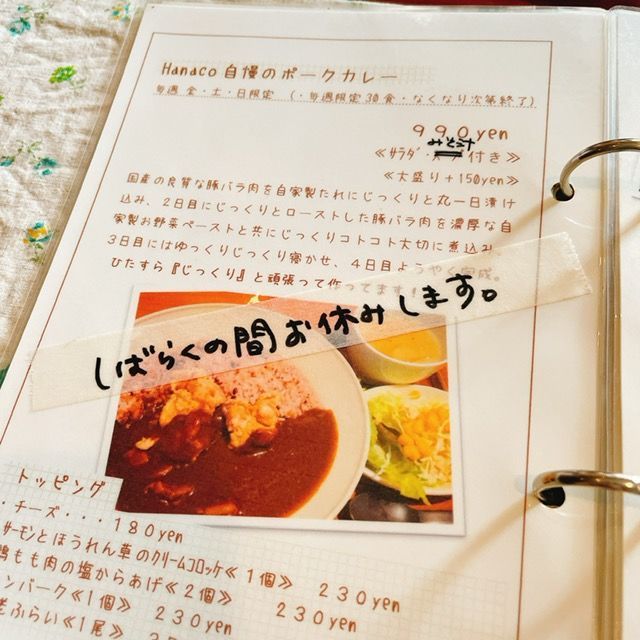 Hanaco自慢のポークカレー
毎週 金・土・日限定 (・毎週限定30食・なくなり次第終了)
990yen
みそ汁
≪サラダ・付き≫
≪大盛り+150yen≫
国産の良質な豚バラ肉を自家製たれにじっくりと丸一日漬け
込み、2日目にじっくりとローストした豚バラ肉を濃厚な自
家製お野菜ペーストと共にじっくりコトコト大切に煮込み、
3日目にはゆっくりじっくり寝かせ、4日目ようやく完成。
ひたすら『じっくり』と頑張って作ってます
しばらくの間お休みします。
トッピング
・チーズ・・・180yen
サーモンとほうれん草のクリームコロッケ≪1個≫ 230yen
鶏もも肉の塩からあげ≪2個≫ 230yen
ンバーグ≪1個≫ 230yen
老ふらい≪1尾≫